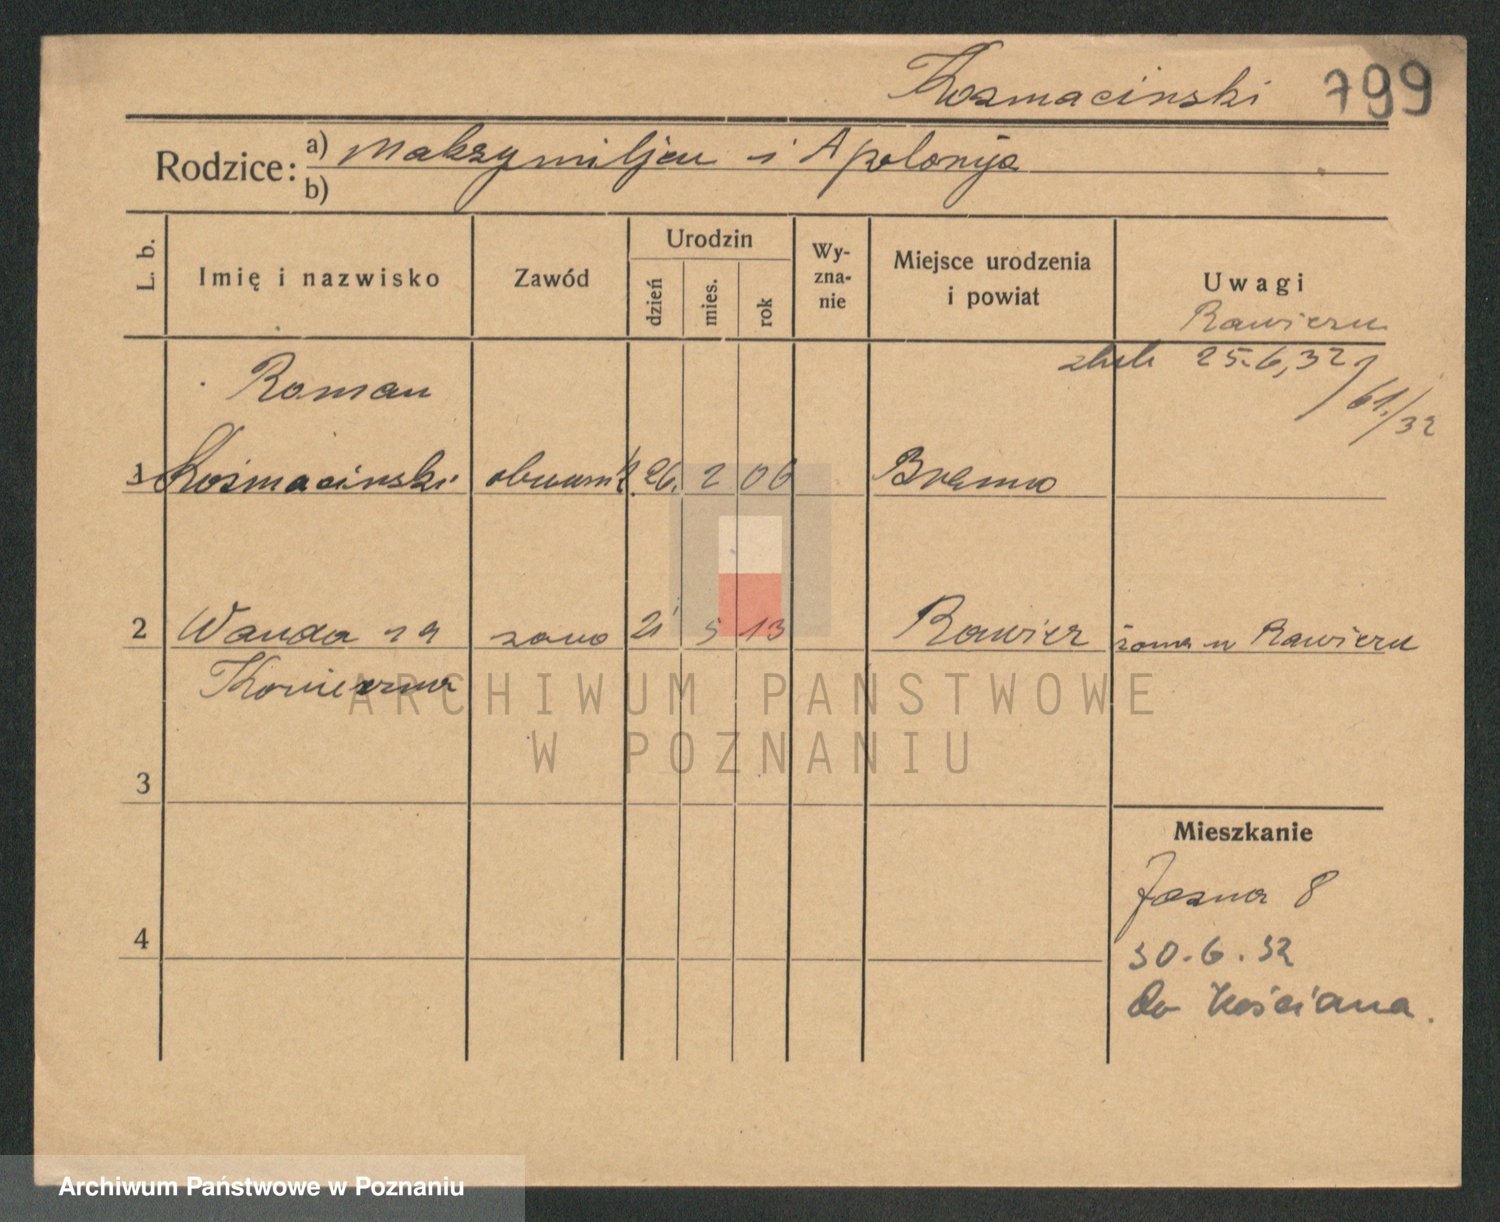 Kosmacinski 799
Rodzice: a) Maksymiljan i Apolonja
b)
L. b. Imię i nazwisko Zawód Urodzin dzień mies. rok Wy-zna-nie Miejsce urodzenia i powiat Uwagi
Rawiczu
25.6.32 61./32
Roman
1 Kośmacinski 26. 2 06 Brenno
2 Wanda za żona 21 5 13 Rawicz żona w Rawiczu
3
Mieszkanie
Jasna 8
4
30.6.32
do Kościana.
ARCHIWUM PANSTWOWE
W POZNANIU
Archiwum Państwowe w Poznaniu